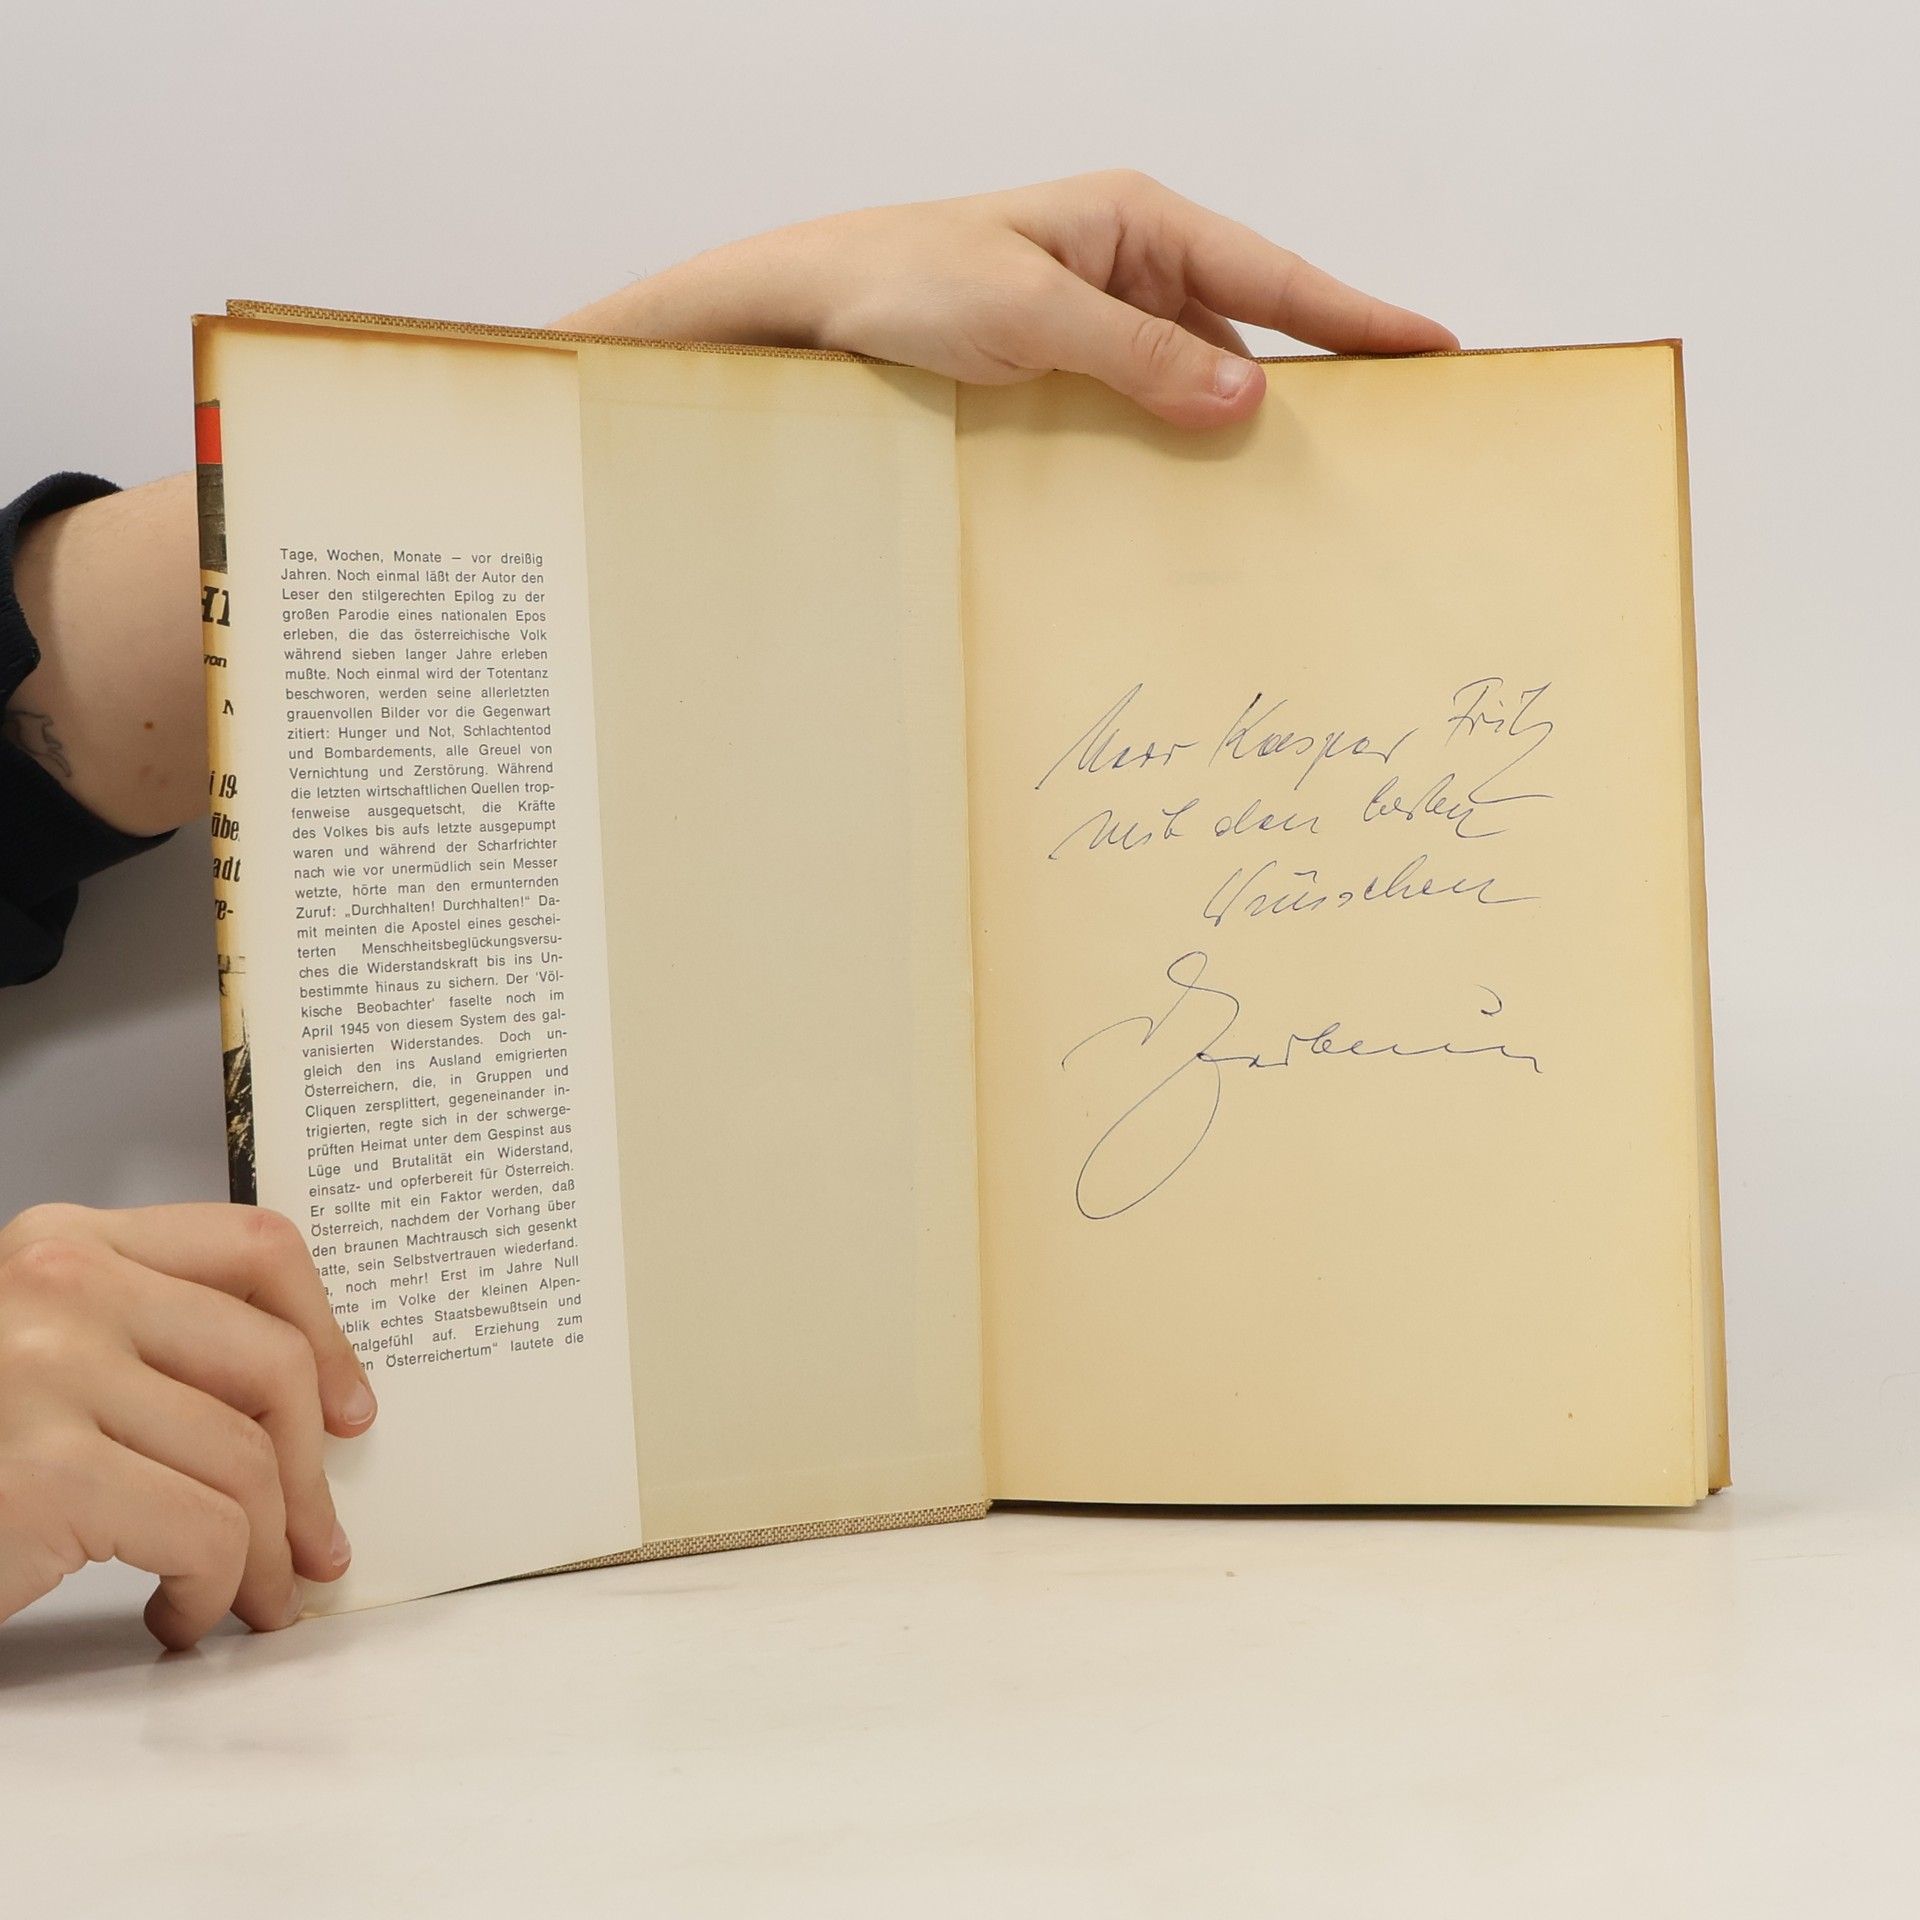 von
N
Tage, Wochen, Monate – vor dreißig
Jahren. Noch einmal läßt der Autor den
Leser den stilgerechten Epilog zu der
großen Parodie eines nationalen Epos
erleben, die das österreichische Volk
während sieben langer Jahre erleben
mußte. Noch einmal wird der Totentanz
beschworen, werden seine allerletzten
grauenvollen Bilder vor die Gegenwart
zitiert: Hunger und Not, Schlachtentod
und Bombardements, alle Greuel von
Vernichtung und Zerstörung. Während
die letzten wirtschaftlichen Quellen trop-
fenweise ausgequetscht, die Kräfte
des Volkes bis aufs letzte ausgepumpt
waren und während der Scharfrichter
nach wie vor unermüdlich sein Messer
wetzte, hörte man den ermunternden
Zuruf: „Durchhalten! Durchhalten!“ Da-
mit meinten die Apostel eines geschei-
terten Menschheitsbeglückungsversu-
ches die Widerstandskraft bis ins Un-
bestimmte hinaus zu sichern. Der 'Völ-
kische Beobachter' faselte noch im
April 1945 von diesem System des gal-
vanisierten Widerstandes. Doch un-
gleich den ins Ausland emigrierten
Österreichern, die, in Gruppen und
Cliquen zersplittert, gegeneinander in-
trigierten, regte sich in der schwerge-
prüften Heimat unter dem Gespinst aus
Lüge und Brutalität ein Widerstand,
einsatz- und opferbereit für Österreich.
Er sollte mit ein Faktor werden, daß
Österreich, nachdem der Vorhang über
den braunen Machtrausch sich gesenkt
hatte, sein Selbstvertrauen wiederfand.
noch mehr! Erst im Jahre Null
im Volke der kleinen Alpen-
echtes Staatsbewußtsein und
auf. Erziehung zum
Österreichertum“ lautete die
Kaspar Fritz
mit den besten
Wünschen